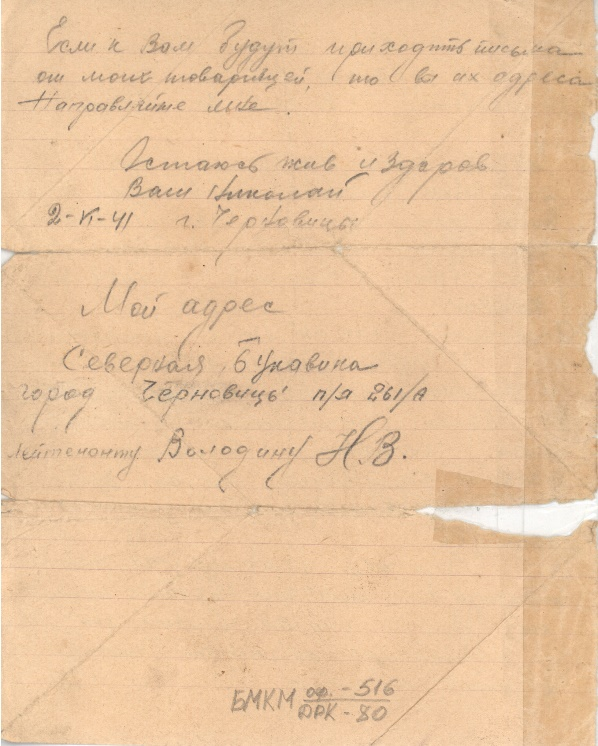 Если к Вам будут приходить письма
от моих товарищей, то вы их адреса
Направляйте мне.
Остаюсь жив и здоров
Ваш Николай
2-VI-41 г. Черновицы
Мой адрес
Северная Буковина
город Черновицы п/я 261/А
Лейтенанту Володину Н.В.
БМКМ оф.-516
ДРК-80